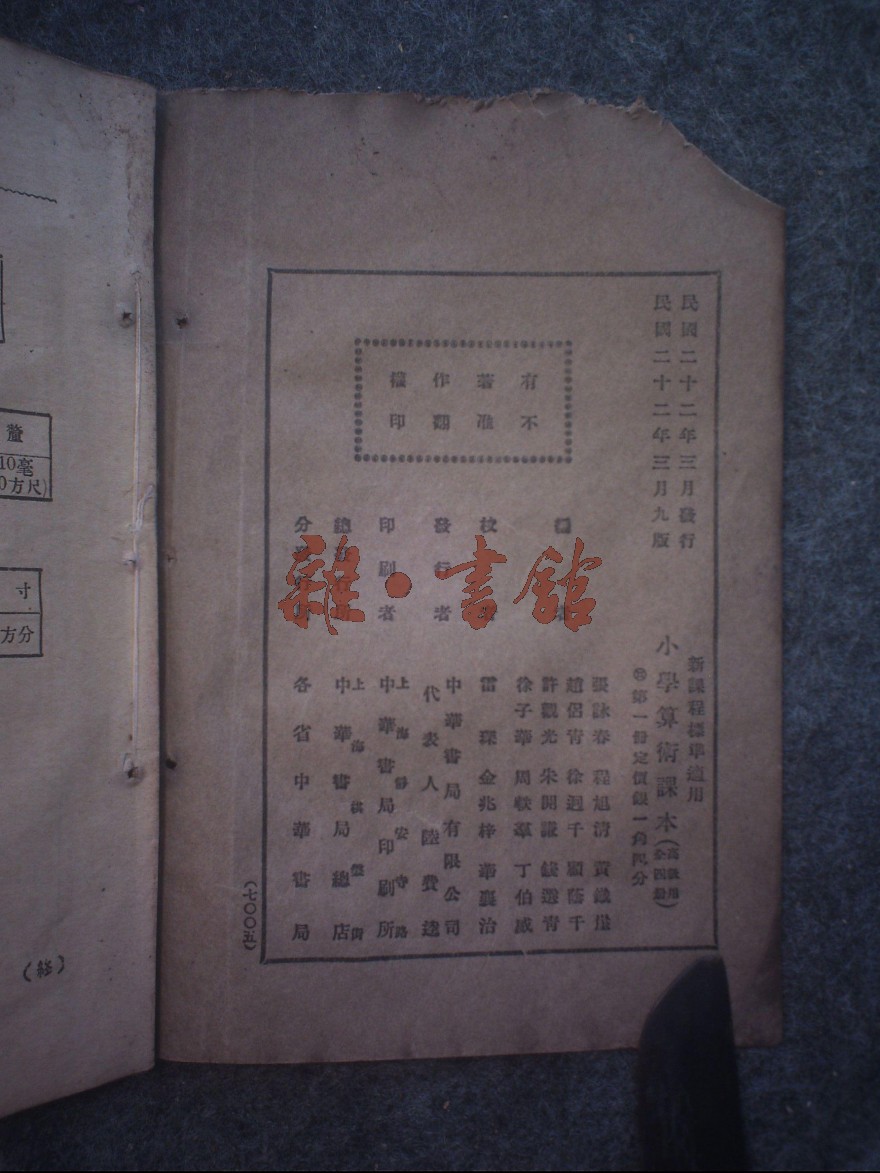 民國二十二年三月發行
民國二十二年三月九版
新課程標準適用
小學算術課本(高級用 全四冊)
第一冊定價銀一角四分
有著作權
不准翻印
編者
張詠春 程旭清 黃鐵崖
趙侶青 徐迥千 顧蔭千
許觀光 朱開謙 錢選青
徐子華 周軼羣 丁伯威
校者
雷琛 金兆梓 華襄治
發行者
中華書局有限公司
代表人 陸費逵
印刷者
上海靜安寺路
中華書局印刷所
總發行所
上海棋盤街
中華書局總店
分發行所
各省中華書局
(七〇〇五)
雜·書館
釐
10毫
0方尺)
寸
方分
(終)